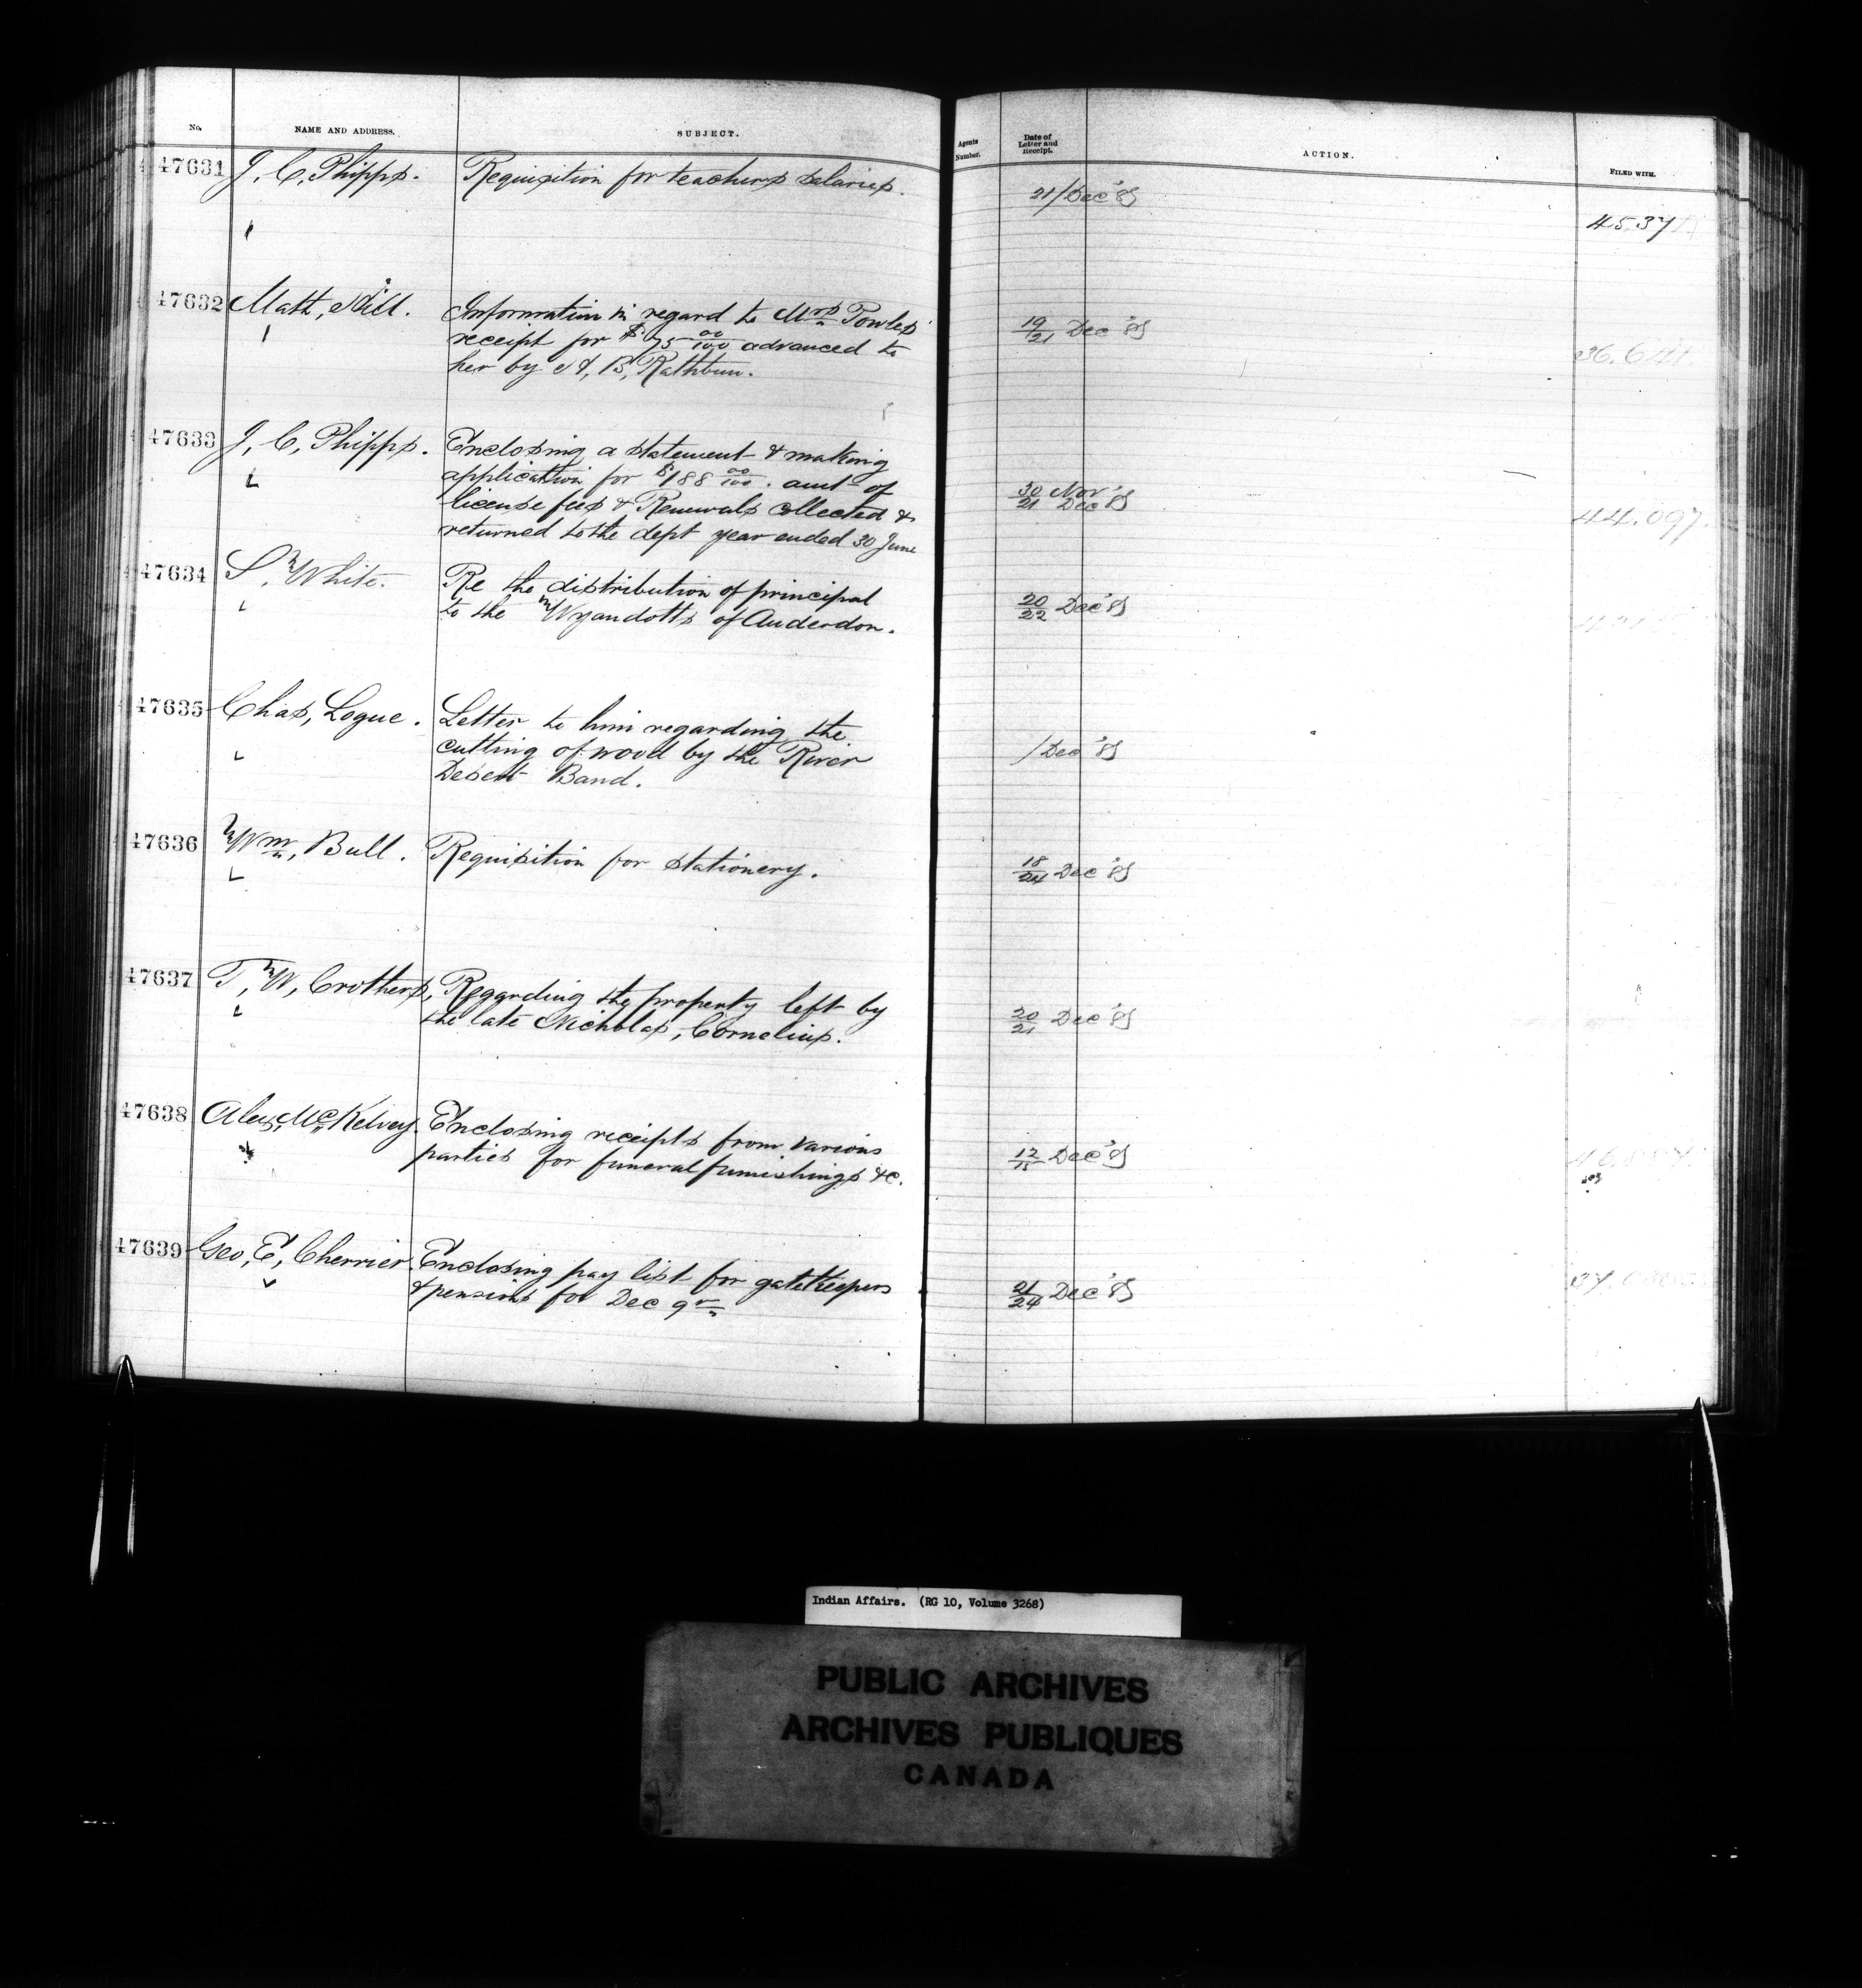 No. NAME AND ADDRESS. SUBJECT. Agents Number. Date of Letter and Receipt. ACTION. FILED WITH.
47631 J. C. Phipps. Requisition for teachers salaries. 21/Dec '85
47632 Math, Hill. Information in regard to Mrs Powles' 19/21 Dec '85
receipt for $75 00/100 advanced to
her by H, B, Rathbun.
47633 J, C, Phipps. Enclosing a statement & making
application for $188 00/100. amt of 30 Nov' 21 Dec '85
license fees & Renewals collected & 44.097.
returned to the dept year ended 30 June
47634 S, White. Re the distribution of principal 20/22 Dec '85
to the Wyandotts of Anderdon.
47635 Chas, Logue. Letter to him regarding the
cutting of wood by the River /Dec '85
Desert Band.
47636 Wm, Bull. Requisition for stationery. 18/24 Dec '85
47637 T, W, Crothers, Regarding the property left by 20/21 Dec '85
the late Nicholas, Cornelius.
47638 Alex, McKelvey. Enclosing receipts from various 12/15 Dec '85
parties for funeral furnishings &c.
47639 Geo, E, Cherrier. Enclosing pay list for gatekeepers 21/24 Dec '85
& pensions for Dec qr
Indian Affairs. (RG 10, Volume 3268)
PUBLIC ARCHIVES
ARCHIVES PUBLIQUES
CANADA